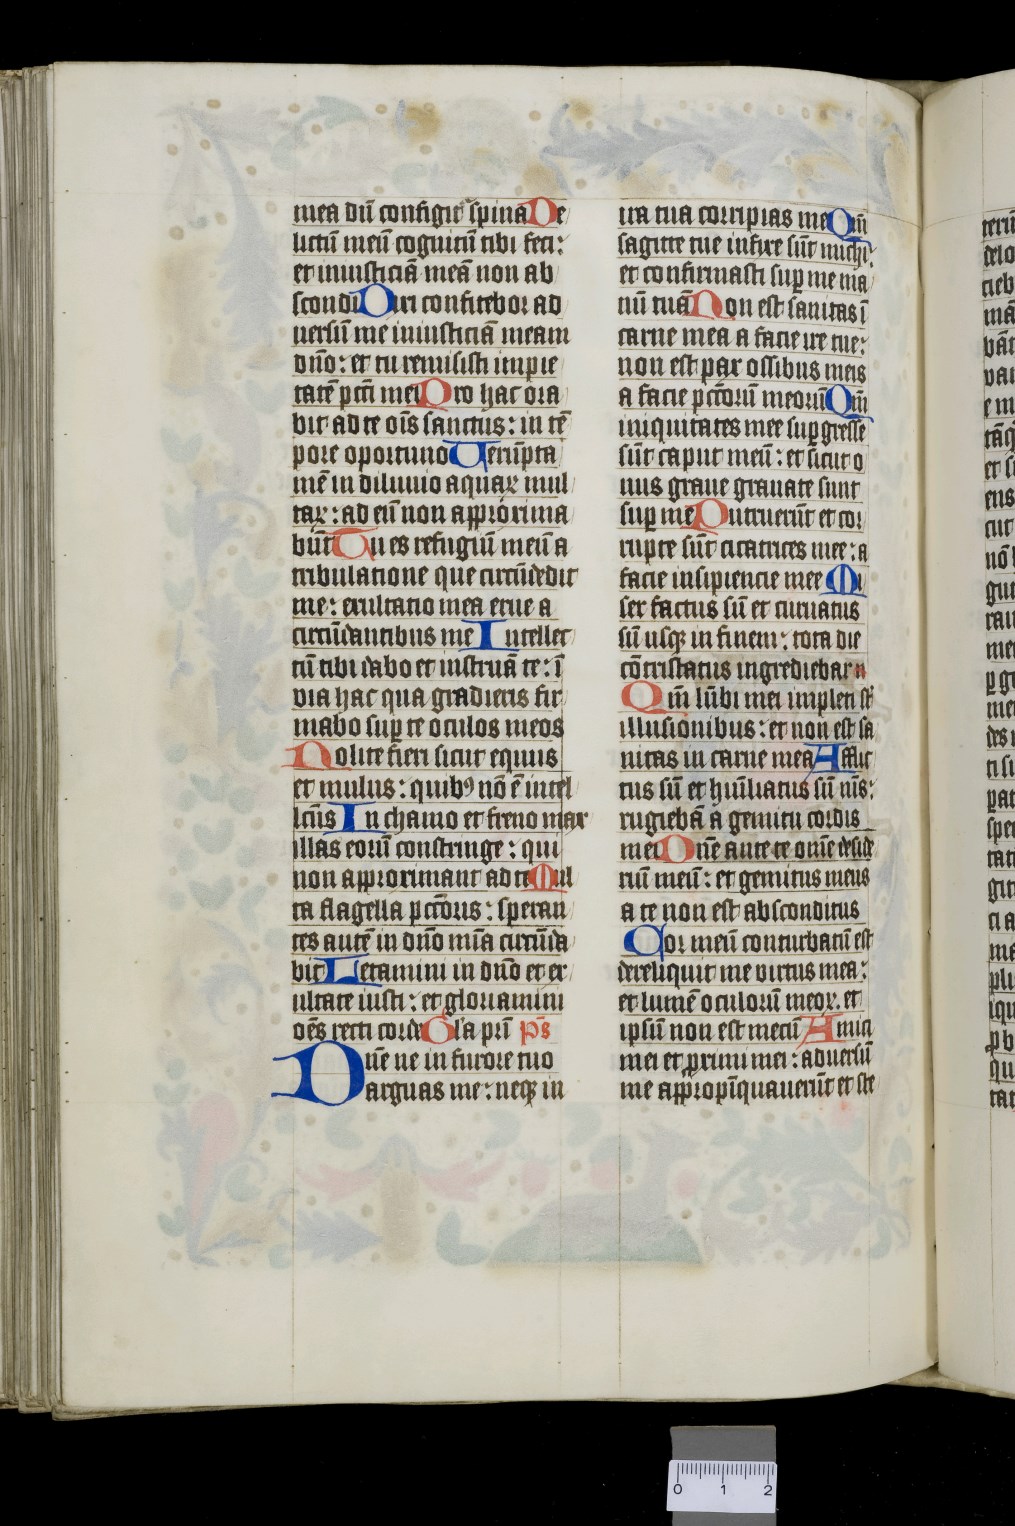 mea dū configit᷑ spina De
lictū meū cognitū tibi feci:
et iniusticiā meā non ab
scondi Dixi confitebor ad
uersū me iniusticiā meam
dn̄o: et tu remisisti impie
tatē pctī mei Pro hac ora
bit ad te oīs sanctus: in tē
pore oportuno Uerūpta
mē in diluuio aquaꝝ mul
taꝝ: ad eū non approxima
būt Tu es refugiū meū a
tribulatione que circūdedit
me: exultatio mea erue a
circūdantibus me Intellec
tū tibi dabo et instruā te: ī
via hac qua gradieris fir
mabo suꝑ te oculos meos
Nolite fieri sicut equus
et mulus: quibꝰ nō ē intel
lctūs In chamo et freno max
illas eorū constringe: qui
non approximant ad te Mul
ta flagella pctōris: speran
tes autē in dn̄o mīa circūda
bit Letamini in dn̄o et ex
ultate iusti: et gloriamini
oēs recti corde Gl'a prī p̄s
Dn̄e ne in furore tuo
arguas me: neqꝫ in
ira tua corripias me Qm̄
sagitte tue infixe sūt michi:
et confirmasti suꝑ me ma
nū tuā Non est sanitas ī
carne mea a facie ire tue:
non est pax ossibus meis
a facie pctōrū meorū Qm̄
iniquitates mee suꝑgresse
sūt caput meū: et sicut o
nus graue grauate sunt
suꝑ me Putruerūt et cor
rupte sūt cicatrices mee: a
facie insipiencie mee Mi
ser factus sū et curuatus
sū usqꝫ in finem: tota die
cōtristatus ingrediebar
Qm̄ lūbi mei impleti sūt
illusionibus: et non est sa
nitas in carne mea Afflic
tus sū et hūiliatus sū nīs:
rugiebā a gemitu cordis
mei Dn̄e ante te omē deside
riū meū: et gemitus meus
a te non est absconditus
Cor meū conturbatū est
dereliquit me virtus mea:
et lumē oculorū meoꝝ. et
ipsū non est mecū Amici
mei et ꝓximi mei: aduersū
me appropīquauerūt et ste